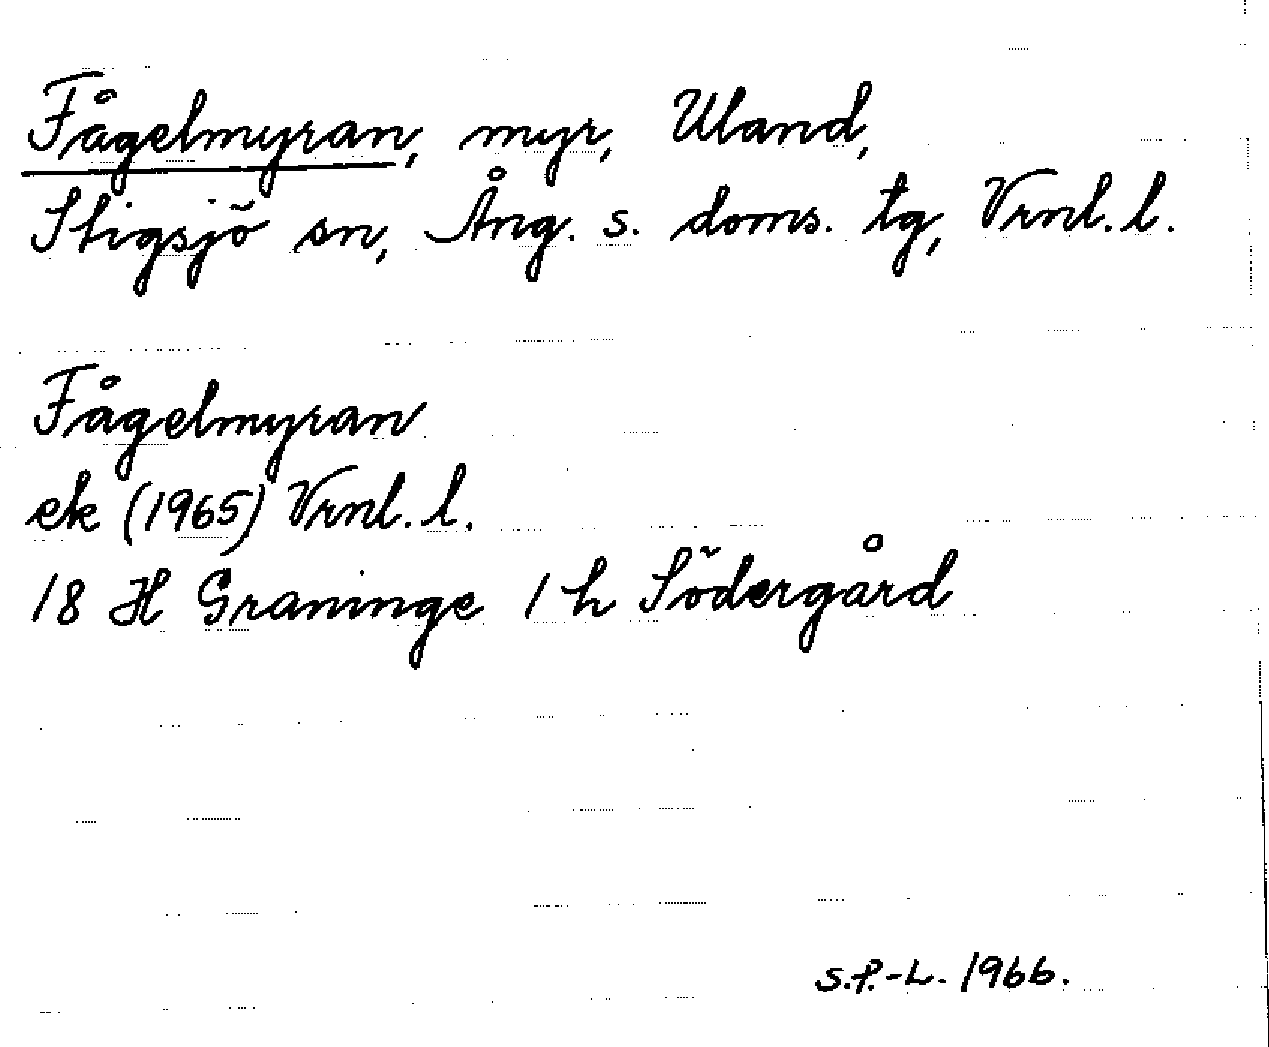 Fågelmyran, myr, Uland,
Stigsjö sn, Ång. s. doms. tg, Vrnl. l.
Fågelmyran
ek (1965) Vrnl. l.
18 H Graninge 1 h Södergård
S.P.-L. 1966.